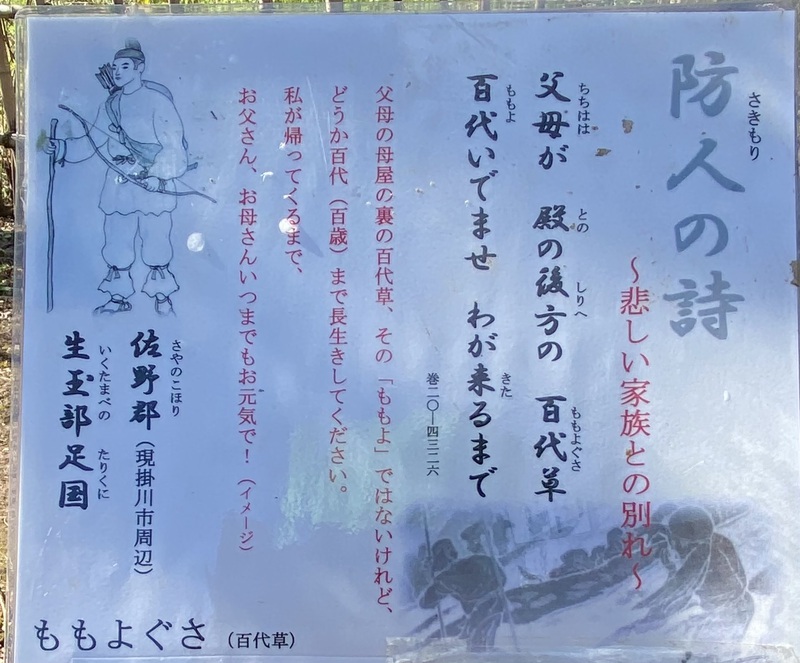 防人の詩
さきもり
～悲しい家族との別れ～
父母が 殿の後方の 百代草
ちちはは との しりへ ももよぐさ
百代いでませ わが来るまで
ももよ きた
巻二〇―四三二六
父母の母屋の裏の百代草、その「ももよ」ではないけれど、
どうか百代（百歳）まで長生きしてください。
私が帰ってくるまで、
お父さん、お母さんいつまでもお元気で！（イメージ）
佐野郡（現掛川市周辺）
さやのこほり
生玉部足国
いくたまべの たりくに
ももよぐさ（百代草）